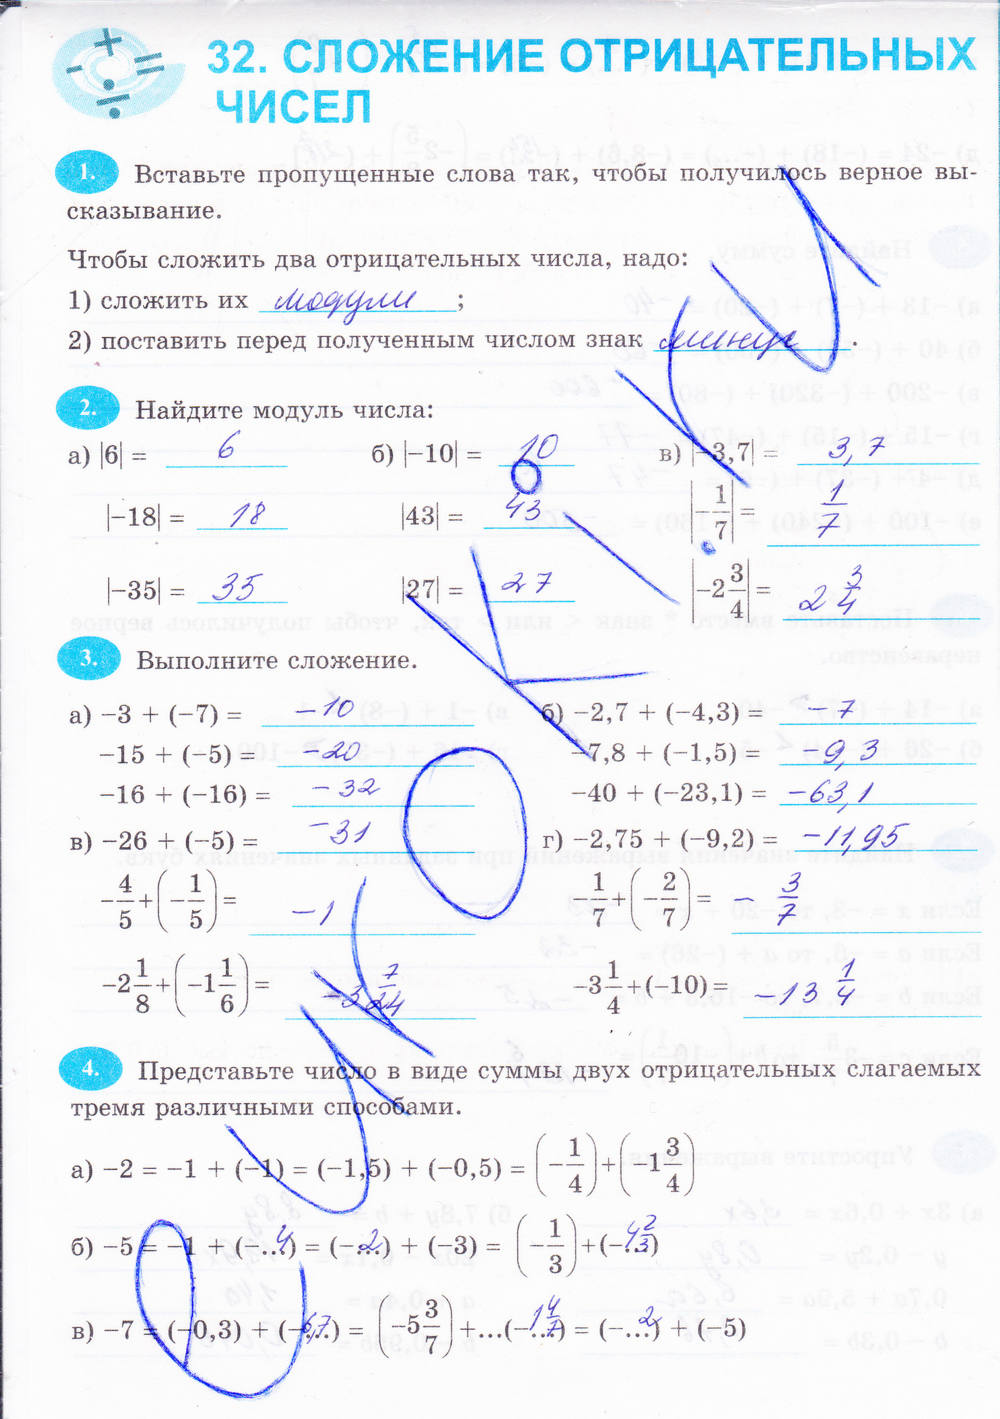 32. СЛОЖЕНИЕ ОТРИЦАТЕЛЬНЫХ
ЧИСЕЛ
1. Вставьте пропущенные слова так, чтобы получилось верное вы-
сказывание.
Чтобы сложить два отрицательных числа, надо:
1) сложить их модули ;
2) поставить перед полученным числом знак минус .
2. Найдите модуль числа:
а) |6| = 6 б) |−10| = 10 в) |−3,7| = 3,7
|−18| = 18 |43| = 43 |−1/7| = 1/7
|−35| = 35 |27| = 27 |−2 3/4| = 2 3/4
3. Выполните сложение.
а) −3 + (−7) = −10 б) −2,7 + (−4,3) = −7
−15 + (−5) = −20 −7,8 + (−1,5) = −9,3
−16 + (−16) = −32 −40 + (−23,1) = −63,1
в) −26 + (−5) = −31 г) −2,75 + (−9,2) = −11,95
−4/5 + (−1/5) = −1 1/7 + (−2/7) = −3/7
−2 1/8 + (−1 1/6) = −3 7/24 −3 1/4 + (−10) = −13 1/4
4. Представьте число в виде суммы двух отрицательных слагаемых
тремя различными способами.
а) −2 = −1 + (−1) = (−1,5) + (−0,5) = (−1/4) + (−1 3/4)
б) −5 = −1 + (−...4) = (−...2) + (−3) = (−1/3) + (−4 2/3)
в) −7 = (−0,3) + (−6,7) = (−5 3/7) + ...(−1 4/7) = (−...2) + (−5)